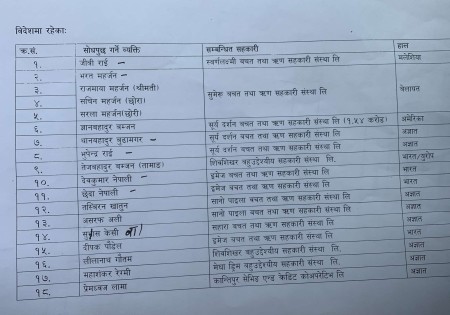 विदेशमा रहेका:
क्र.सं. सोधपुछ गर्ने व्यक्ति सम्बन्धित सहकारी हाल
१. जीबी राई – स्वर्णलक्ष्मी बचत तथा ऋण सहकारी संस्था लि मलेशिया
२. भरत महर्जन – सुमेरु बचत तथा ऋण सहकारी संस्था लि बेलायत
३. राजमाया महर्जन (श्रीमती)
४. सचिन महर्जन (छोरा)
५. सरला महर्जन(छोरी)
६. ज्ञानबहादुर बम्जन सूर्य दर्शन बचत तथा ऋण सहकारी संस्था लि (१.५४ करोड) अमेरिका
७. धानबहादुर बुढामगर – सूर्य दर्शन बचत तथा ऋण सहकारी संस्था लि अज्ञात
८. भुपेन्द्र राई – सूर्य दर्शन बचत तथा ऋण सहकारी संस्था लि अज्ञात
९. तेजबहादुर बम्जन (लामाड) शिवशिखर बहुउद्देश्यीय सहकारी संस्था लि. भारत/युरोप
१०. देवकुमार नेपाली – इमेज बचत तथा ऋण सहकारी संस्था लि भारत
११. छेदा नेपाली – इमेज बचत तथा ऋण सहकारी संस्था लि भारत
१२. तस्बिरन खातुन सानो पाइला बचत तथा ऋण सहकारी संस्था लि अज्ञात
१३. असरफ अली सानो पाइला बचत तथा ऋण सहकारी संस्था लि अज्ञात
१४. केसी सहारा बचत तथा ऋण सहकारी संस्था लि अज्ञात
१५. दीपक पौडेल इमेज बचत तथा ऋण सहकारी संस्था लि भारत
१६. लीलानाथ गौतम शिवशिखर बहुउद्देश्यीय सहकारी संस्था लि. अज्ञात
१७. महाशंकर रेग्मी मेधा ड्रिम बहुउद्देश्यीय सहकारी संस्था लि. अज्ञात
१८. प्रेमध्वज लामा कान्तिपुर सेभिङ एण्ड क्रेडिट कोअपरेटिभ लि अज्ञात